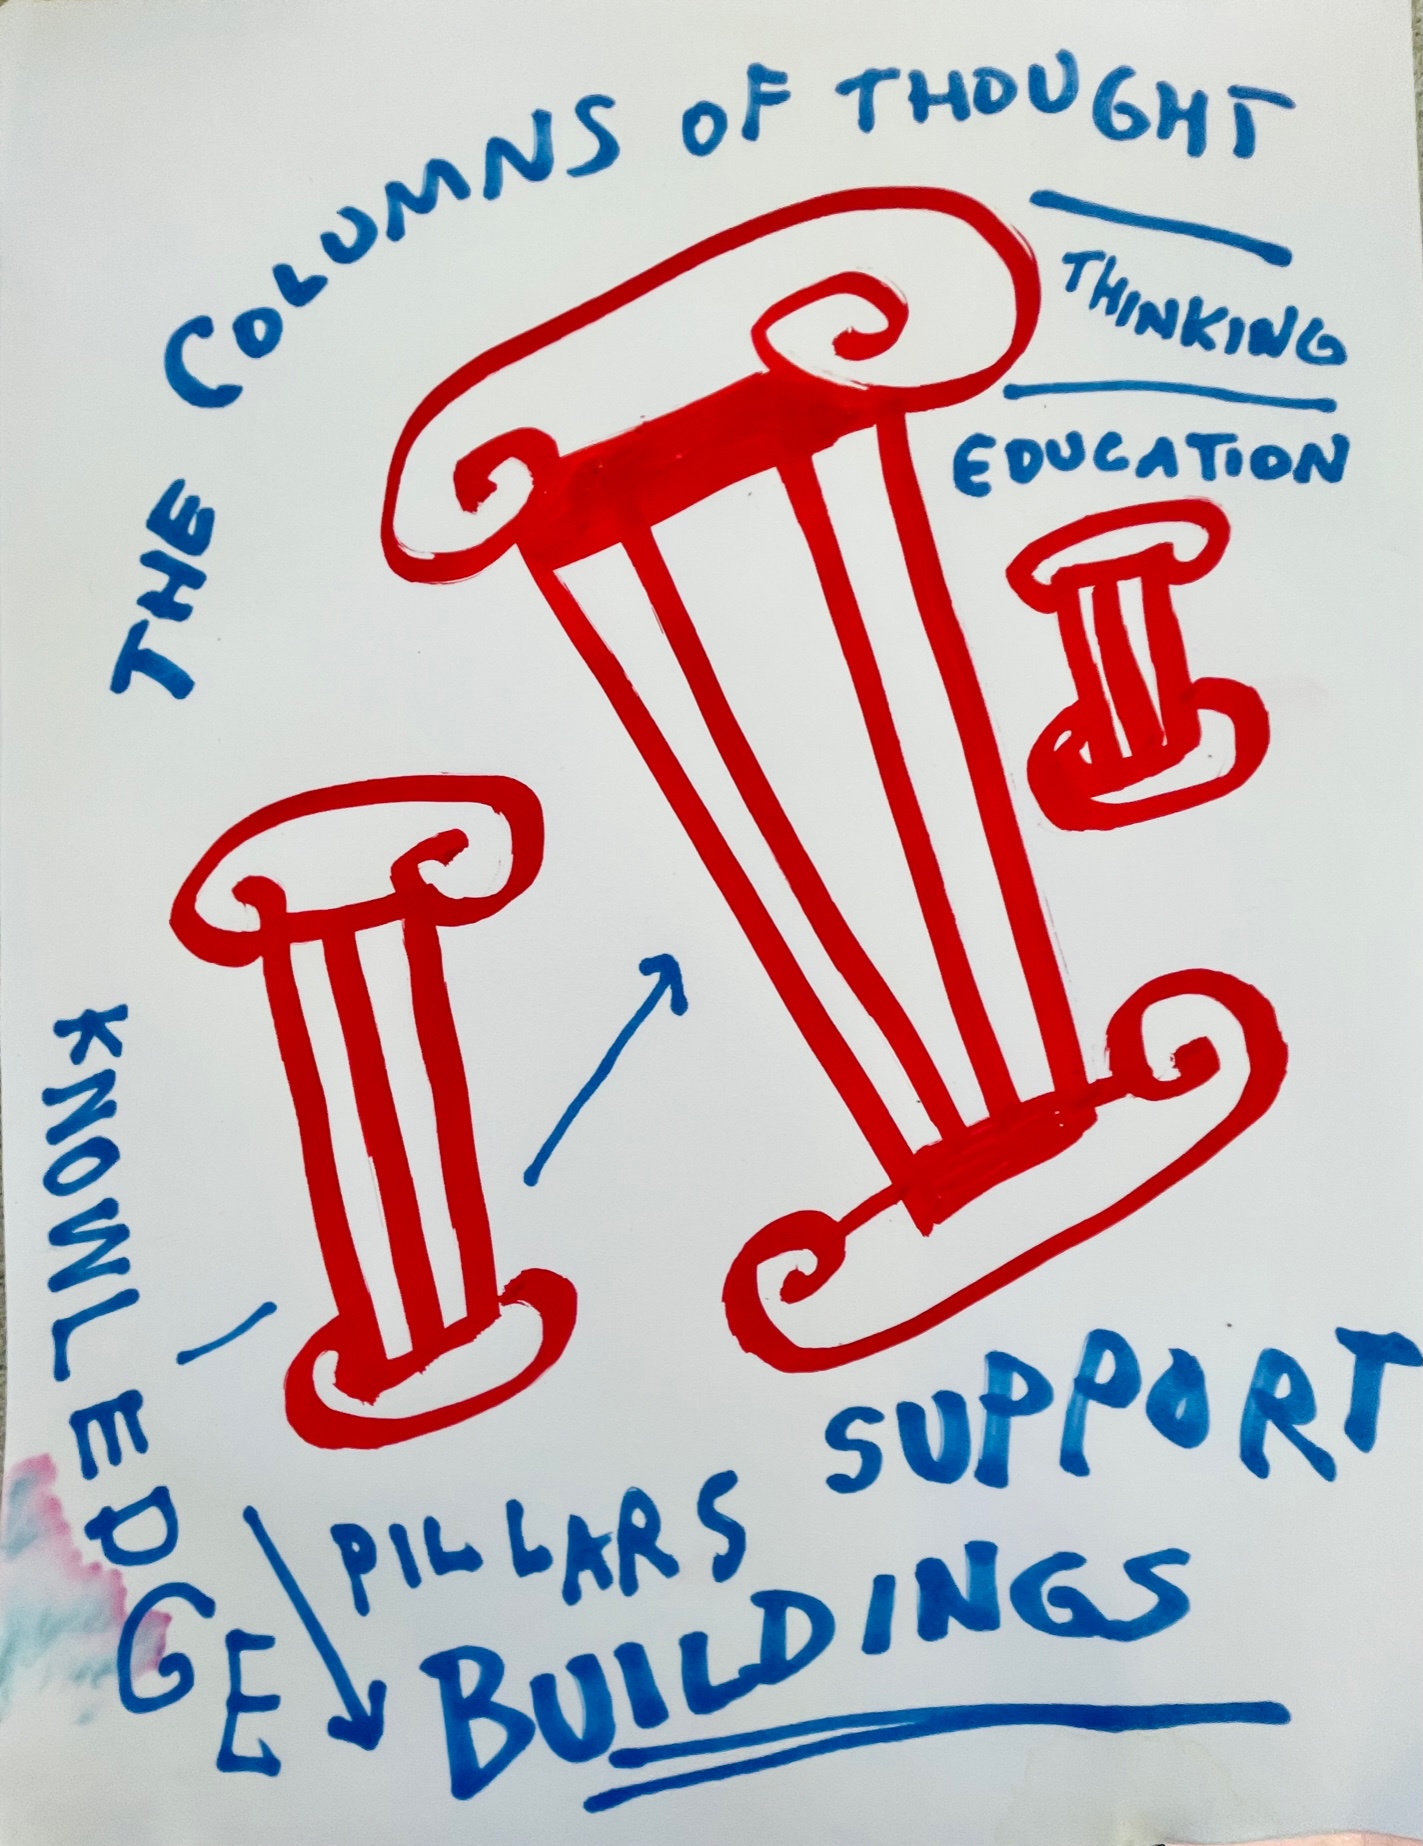 THE COLUMNS OF THOUGHT
THINKING
EDUCATION
KNOWLEDGE
SUPPORT
PILLARS
BUILDINGS